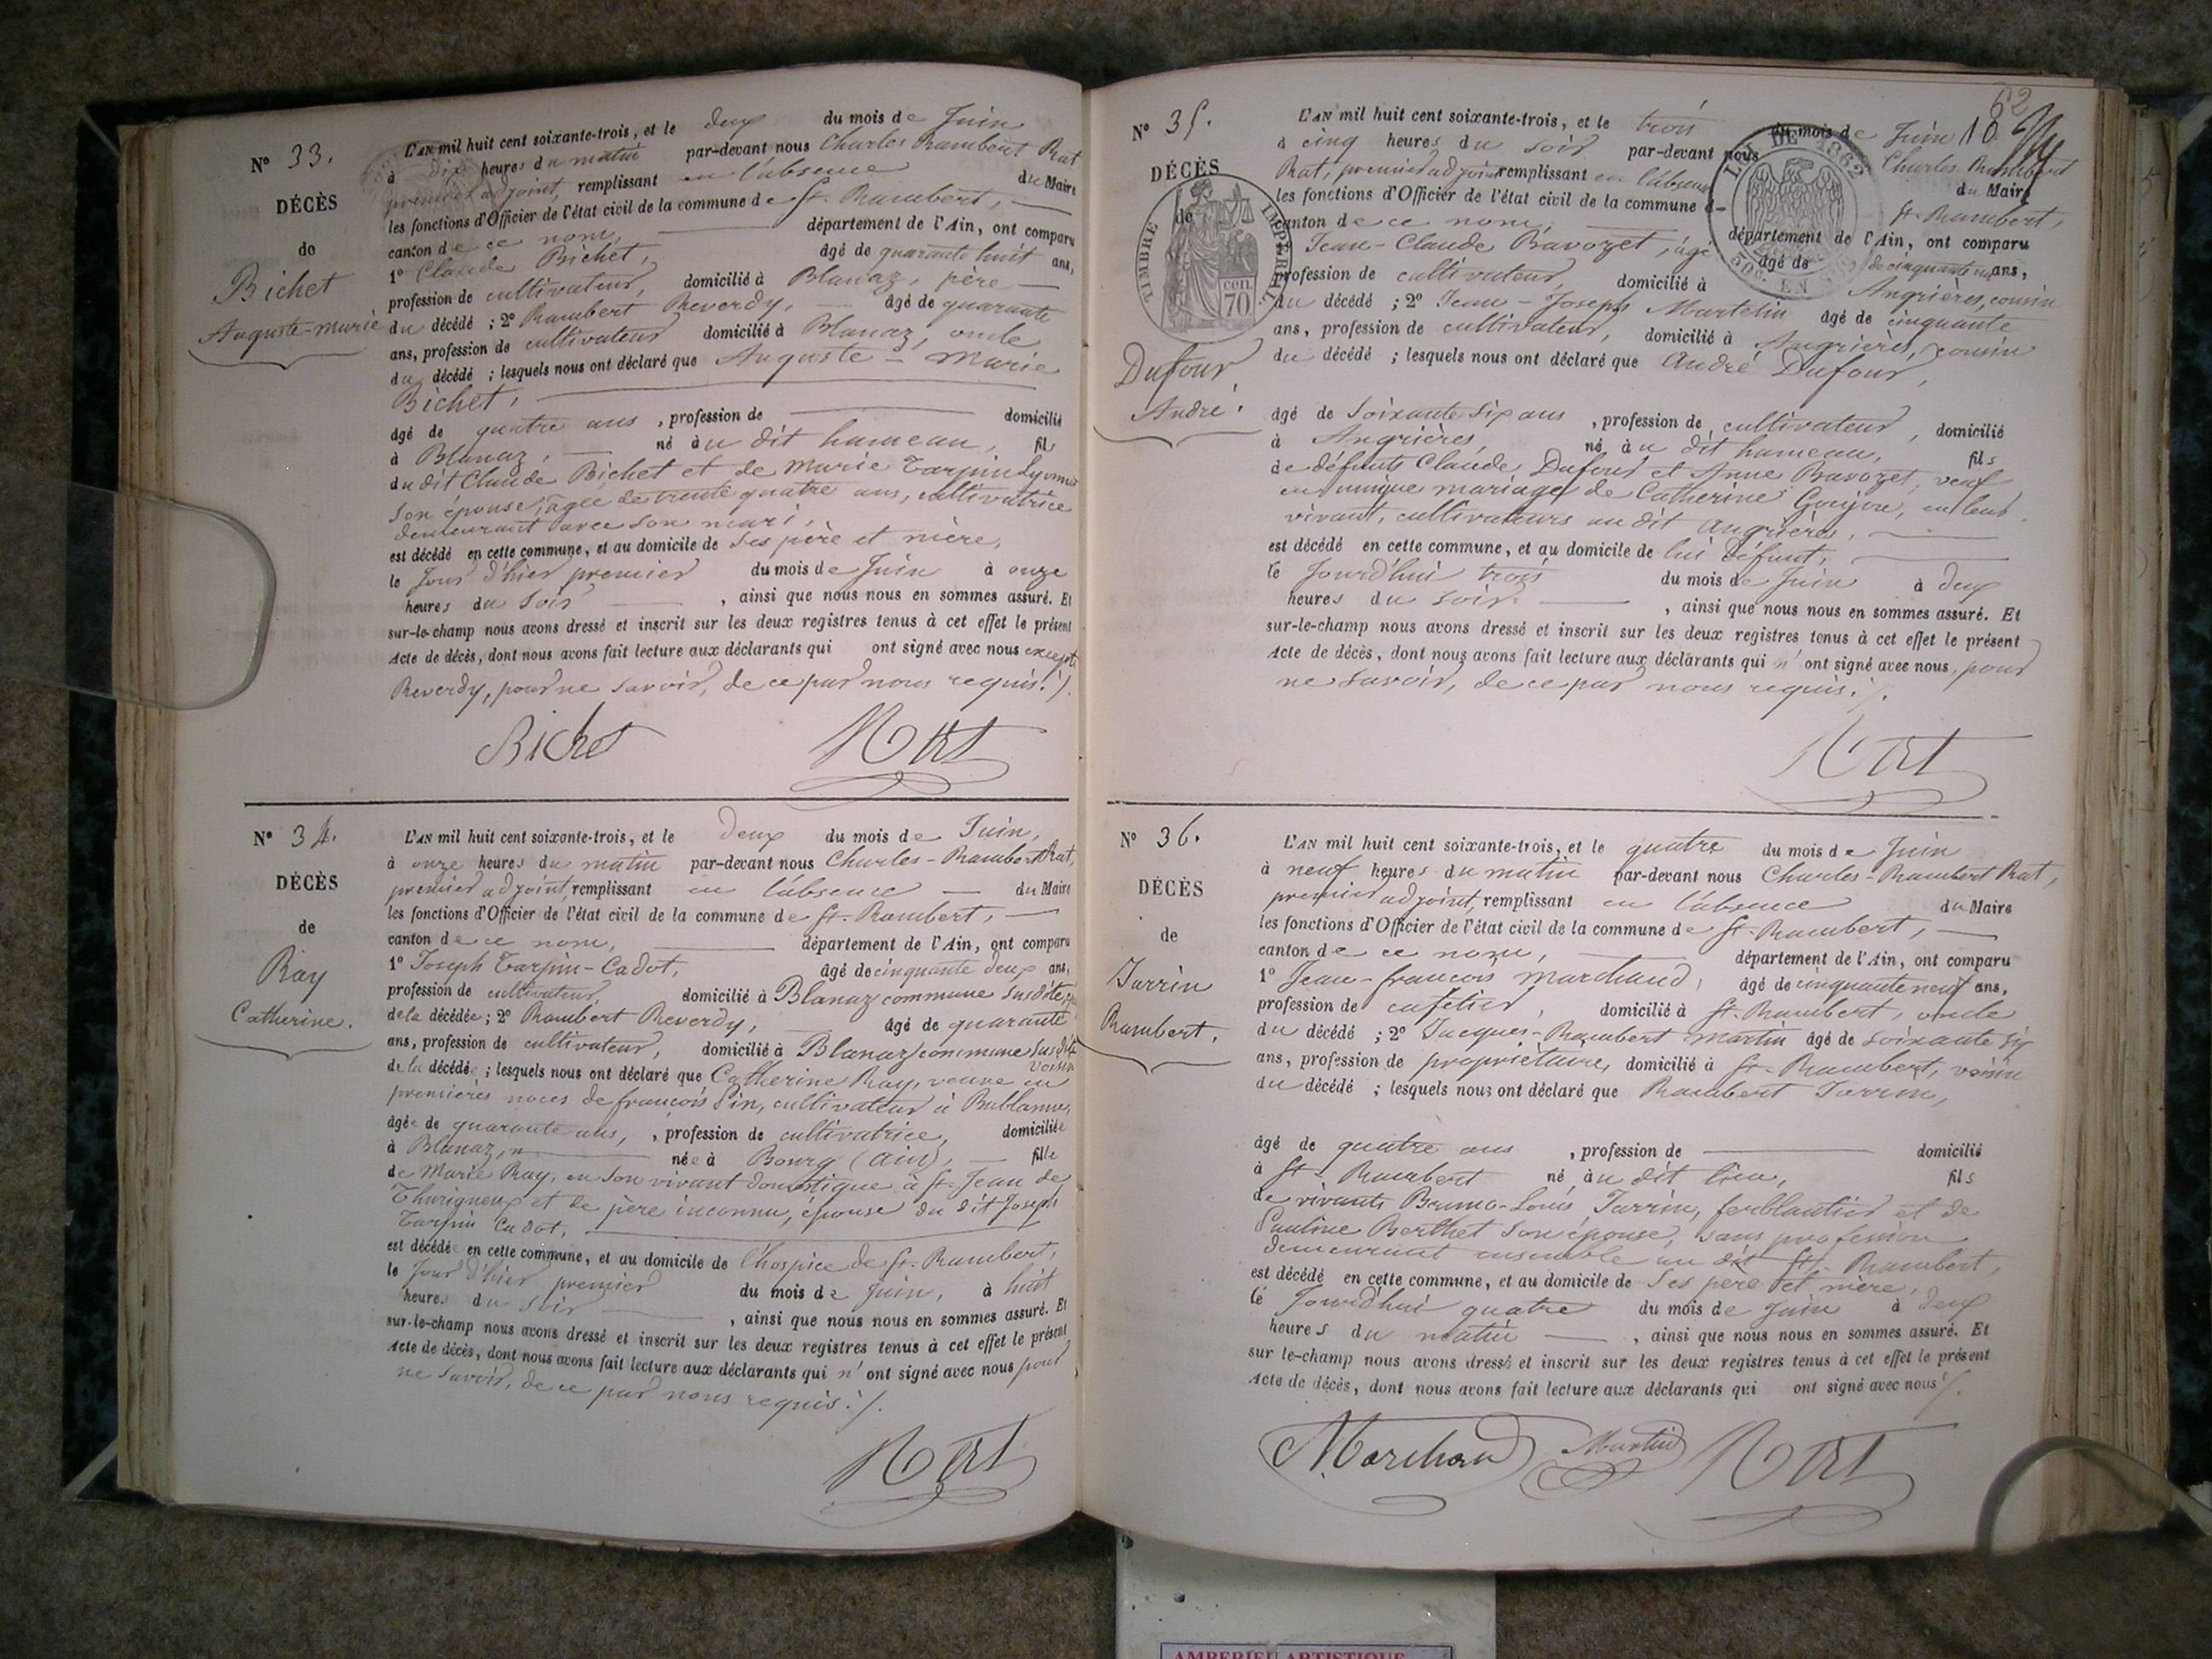 N° 33.
DÉCÈS
de
Bichet
Auguste-marie
L'AN mil huit cent soixante-trois, et le deux du mois de Juin
à dix heures du matin par-devant nous Charles Rambert Rat
premier adjoint, remplissant en l'absence du Maire
les fonctions d'Officier de l'état civil de la commune de St. Rambert,
canton de ce nom, département de l'Ain, ont comparu
1° Claude Bichet, âgé de quarante huit ans,
profession de cultivateur, domicilié à Blanaz, père
du décédé ; 2° Rambert Reverdy, âgé de quarante
ans, profession de cultivateur domicilié à Blanaz, oncle
du décédé ; lesquels nous ont déclaré que Auguste-Marie
Bichet,
âgé de quatre ans , profession de domicilié
à Blanaz, né au dit hameau, fils
du dit Claude Bichet et de Marie Tarpin
son épouse, âgée de trente quatre ans, cultivatrice
demeurant avec son mari,
est décédé en cette commune, et au domicile de ses père et mère,
le jour d'hier premier du mois de Juin à onze
heures du soir , ainsi que nous nous en sommes assuré. Et
sur-le-champ nous avons dressé et inscrit sur les deux registres tenus à cet effet le présent
Acte de décès, dont nous avons fait lecture aux déclarants qui ont signé avec nous excepté
Reverdy, pour ne savoir, de ce par nous requis. /.
Bichet Rat
N° 34.
DÉCÈS
de
Ray
Catherine.
L'AN mil huit cent soixante-trois, et le deux du mois de Juin,
à onze heures du matin par-devant nous Charles-Rambert Rat,
premier adjoint, remplissant en l'absence du Maire
les fonctions d'Officier de l'état civil de la commune de St. Rambert,
canton de ce nom, département de l'Ain, ont comparu
1° Joseph Tarpin-Cadot, âgé de cinquante deux ans,
profession de cultivateur, domicilié à Blanaz commune susdite,
de la décédée ; 2° Rambert Reverdy, âgé de quarante
ans, profession de cultivateur, domicilié à Blanaz commune susdite
voisin
de la décédée ; lesquels nous ont déclaré que Catherine Ray, veuve en
premières noces de françois Pin, cultivateur à
âgée de quarante ans, , profession de cultivatrice, domiciliée
à Blanaz, née à Bourg (Ain), fille
de Marie Ray, en son vivant domestique à St. Jean de
Thurigneux et de père inconnu, épouse du dit Joseph
Tarpin Cadot,
est décédée en cette commune, et au domicile de l'hospice de St. Rambert,
le jour d'hier premier du mois de Juin, à huit
heures du soir , ainsi que nous nous en sommes assuré. Et
sur-le-champ nous avons dressé et inscrit sur les deux registres tenus à cet effet le présent
Acte de décès, dont nous avons fait lecture aux déclarants qui n' ont signé avec nous pour
ne savoir, de ce par nous requis. /.
Rat
62
10
N° 35.
DÉCÈS
de
TIMBRE IMPÉRIAL
70 cen.
LOI DE 1862
50c EN
Dufour
André.
L'AN mil huit cent soixante-trois, et le trois du mois de Juin
à cinq heures du soir par-devant nous Charles Rambert
Rat, premier adjoint remplissant en l'absence du Maire
les fonctions d'Officier de l'état civil de la commune d- St. Rambert,
canton de ce nom, département de l'Ain, ont comparu
Jean-Claude Bavozet, âgé âgé de de cinquante ans,
profession de cultivateur, domicilié à Angrières, cousin
du décédé ; 2° Jean-Joseph Martelin âgé de cinquante
ans, profession de cultivateur, domicilié à Angrières, cousin
du décédé ; lesquels nous ont déclaré que André Dufour,
âgé de soixante six ans , profession de cultivateur, domicilié
à Angrières, né au dit hameau, fils
de défunts Claude Dufour et Anne Bavozet, veuf
en unique mariage de Catherine Goujon, en leur
vivant, cultivateurs au dit Angrières,
est décédé en cette commune, et au domicile de lui défunt,
le Jourd'hui trois du mois de Juin à deux
heures du soir. , ainsi que nous nous en sommes assuré. Et
sur-le-champ nous avons dressé et inscrit sur les deux registres tenus à cet effet le présent
Acte de décès, dont nous avons fait lecture aux déclarants qui n' ont signé avec nous, pour
ne savoir, de ce par nous requis. /.
Rat
N° 36.
DÉCÈS
de
Jarrin
Rambert.
L'AN mil huit cent soixante-trois, et le quatre du mois de Juin
à neuf heures du matin par-devant nous Charles-Rambert Rat,
premier adjoint, remplissant en l'absence du Maire
les fonctions d'Officier de l'état civil de la commune de St. Rambert,
canton de ce nom, département de l'Ain, ont comparu
1° Jean-françois Marchand, âgé de cinquante neuf ans,
profession de cafetier, domicilié à St. Rambert, oncle
du décédé ; 2° Jacques-Rambert Martin âgé de soixante six
ans, profession de propriétaire, domicilié à St. Rambert, voisin
du décédé ; lesquels nous ont déclaré que Rambert Jarrin,
âgé de quatre ans , profession de domicilié
à St. Rambert né au dit lieu, fils
de vivants Bruno-Louis Jarrin, ferblantier et de
Pauline Berthet son épouse, sans profession
demeurant ensemble au dit St. Rambert,
est décédé en cette commune, et au domicile de ses père et mère,
le Jourd'hui quatre du mois de Juin à deux
heures du matin , ainsi que nous nous en sommes assuré. Et
sur le-champ nous avons dressé et inscrit sur les deux registres tenus à cet effet le présent
Acte de décès, dont nous avons fait lecture aux déclarants qui ont signé avec nous /.
Marchand Martin Rat
AMBERIEU ARTISTIQUE